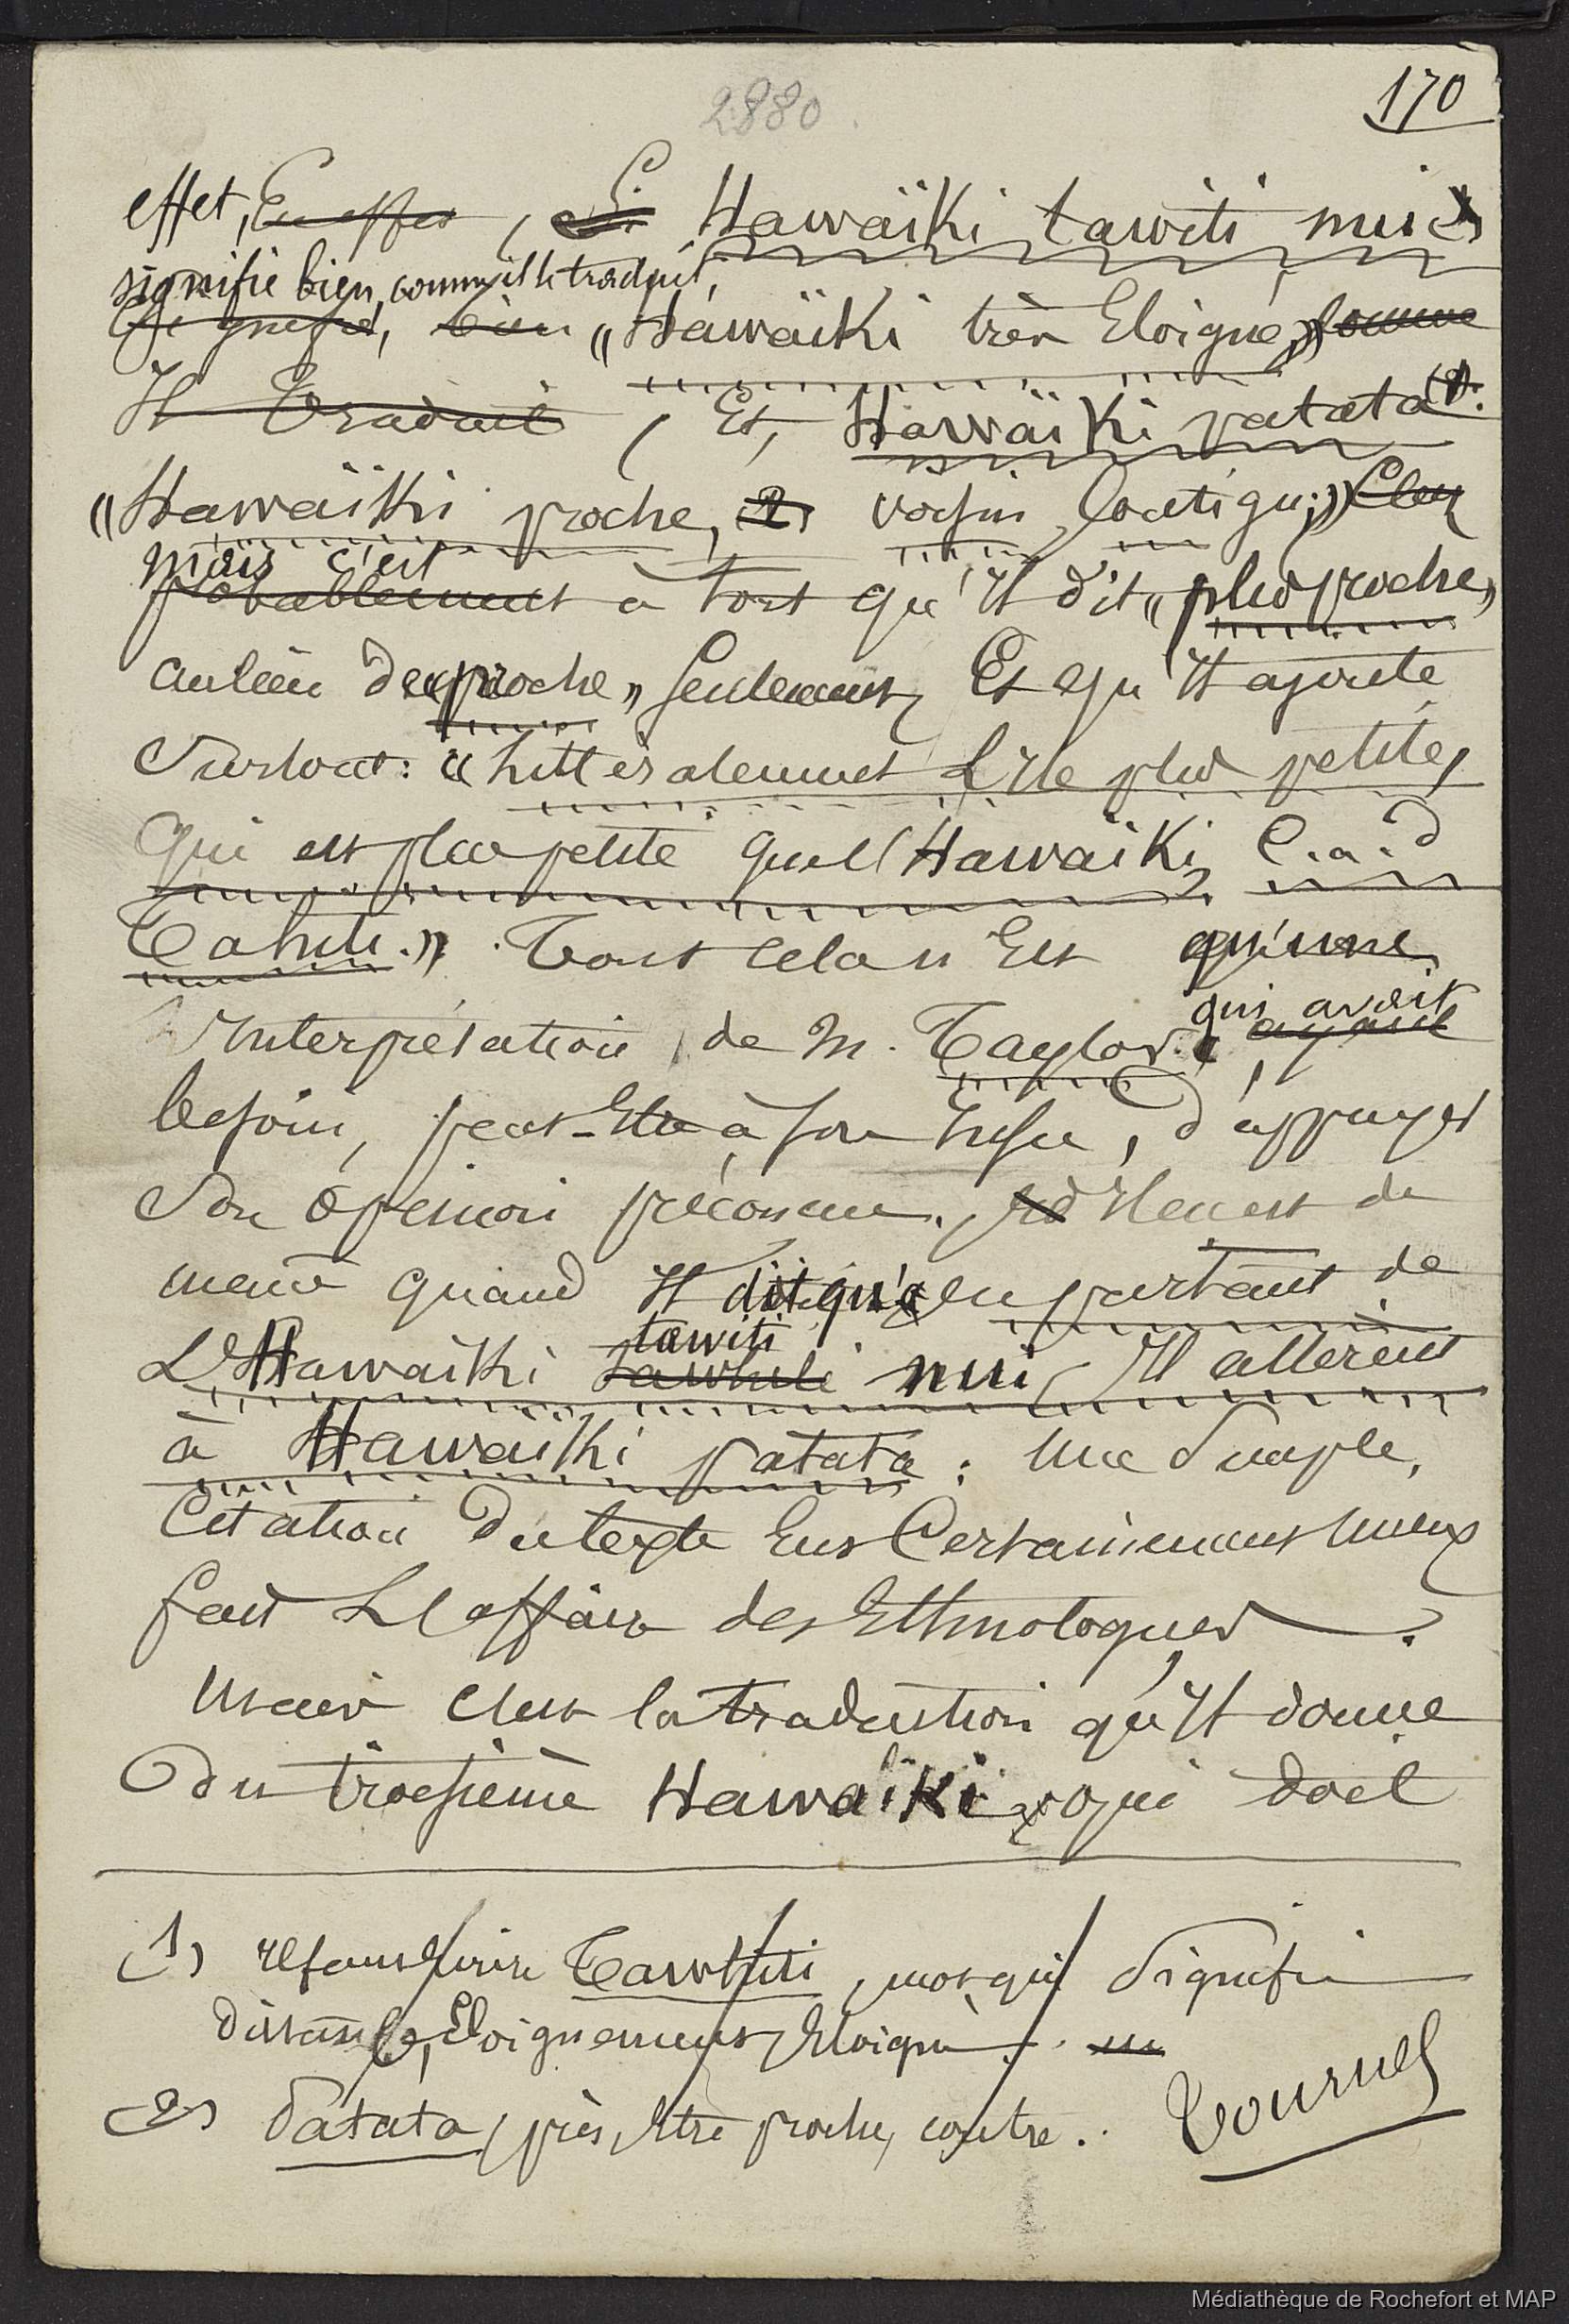 2880
170
effet, En effet, Si Hawaïki tawiti nui
signifie bien, comme il le traduit,
Signifie, bien « Hawaïki très Eloigné, » comme
Il Traduit, Et, Hawaïki patata (1).
« Hawaïki proche, voisin Contigu; »
mais c'est
probablement à tort qu'Il dit « plus proche »
au lieu de « proche » seulement, Et qu'Il ajoute
Surtout: « Littéralement L'Ile plus petite,
qui est plus petite que l'Hawaïki, C.a.d
Tahiti. » Tout cela n'Est qu'une
qui avait
Interprétation de M. Taylor, ayant
besoin, peut-Etre à son Insu, d'appuyer
Son Opinion préconçue. Il en est de
même quand Il dit qu'en partant de
tawiti
L'Hawaïki tawhiti nui, Il allèrent
à Hawaïki patata: Une Simple,
Citation du texte Eut Certainement mieux
fait L'affaire des Ethnologues.
Mais C'est la traduction qu'Il donne
Du troisième Hawaïki qui doit
(1) Il faut Ecrire Tawhiti, mot qui Signifie
distance, Eloignement, Eloigné.
(2) Patata, près, Etre proche, contre.
Tournez